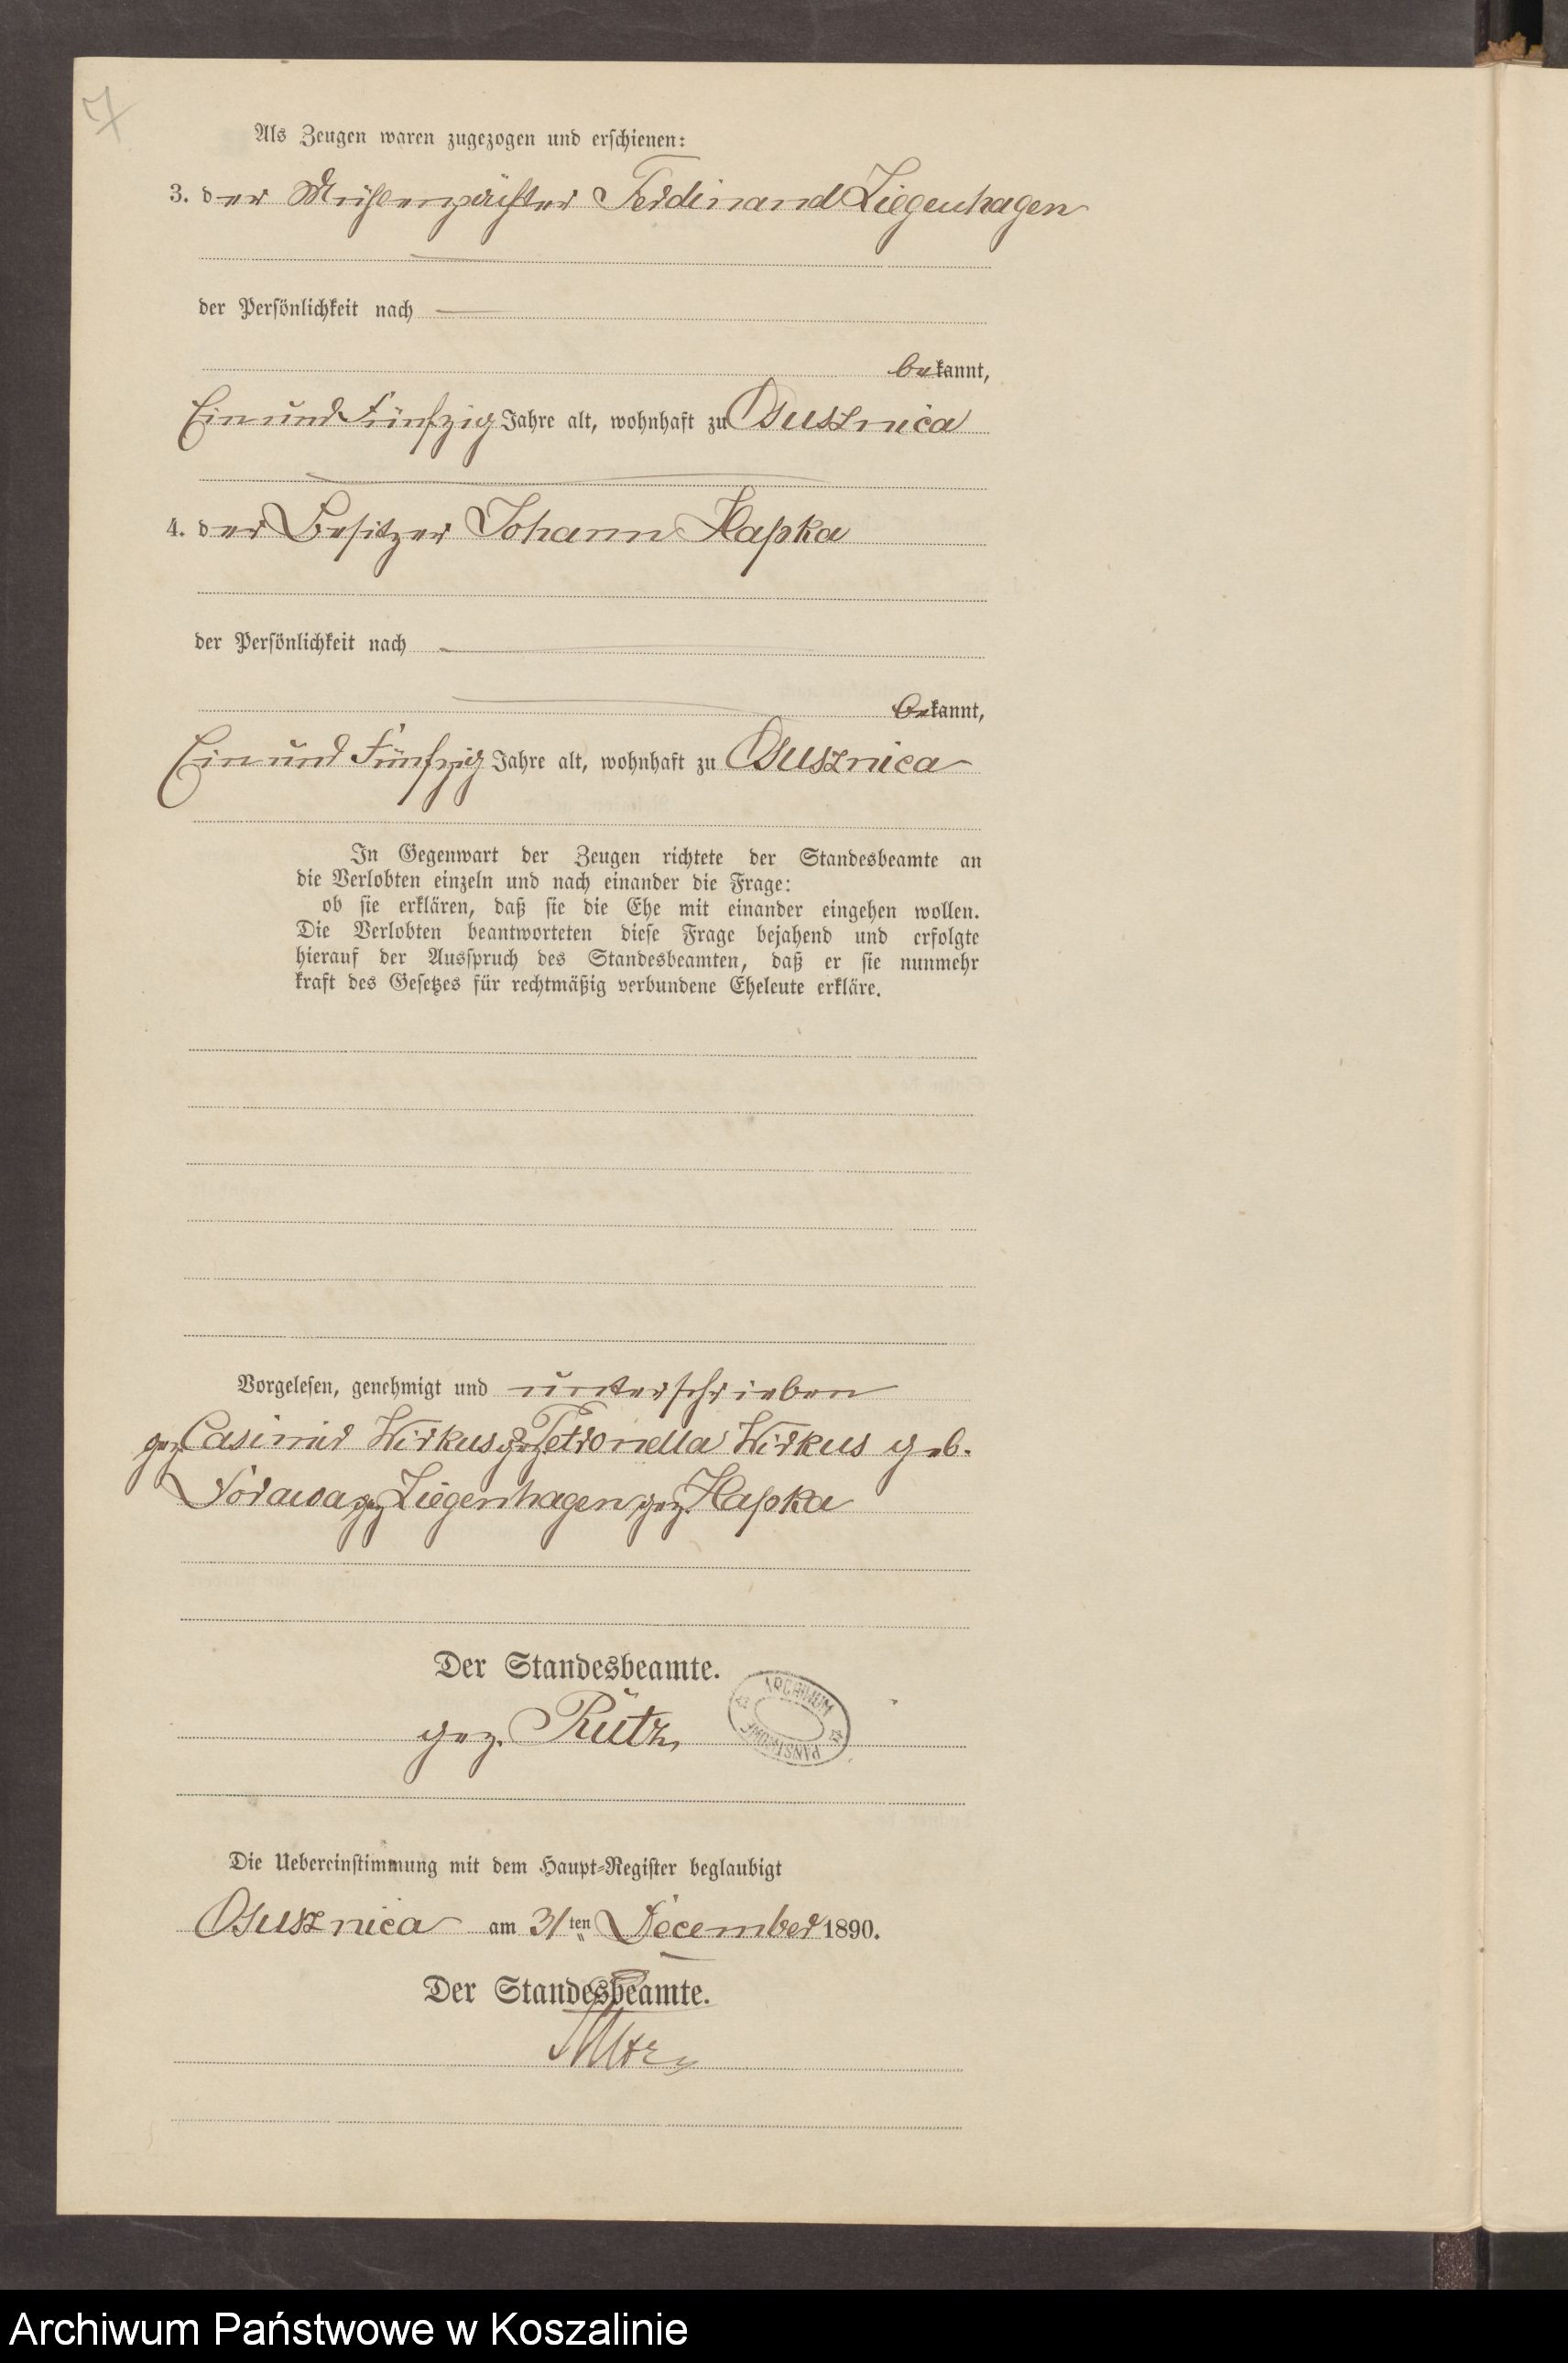 7
Als Zeugen waren zugezogen und erschienen:
3. der Mühlenpächter Ferdinand Ziegenhagen
der Persönlichkeit nach
bekannt,
Ein und Fünfzig Jahre alt, wohnhaft zu Ossusznica
4. der Besitzer Johann Hapka
der Persönlichkeit nach
bekannt,
Ein und Fünfzig Jahre alt, wohnhaft zu Osusznica
In Gegenwart der Zeugen richtete der Standesbeamte an
die Verlobten einzeln und nach einander die Frage:
ob sie erklären, daß sie die Ehe mit einander eingehen wollen.
Die Verlobten beantworteten diese Frage bejahend und erfolgte
hierauf der Ausspruch des Standesbeamten, daß er sie nunmehr
kraft des Gesetzes für rechtmäßig verbundene Eheleute erkläre.
Vorgelesen, genehmigt und unterschrieben
gez. Casimir Wirkus gez. Petronella Wirkus geb.
gez. Ziegenhagen gez. Hapka
Der Standesbeamte.
gez. Rütz,
ARCHIWUM PAŃSTWOWE
Die Uebereinstimmung mit dem Haupt-Register beglaubigt
Osusznica am 31ten December 1890.
Der Standesbeamte.
Rütz
Archiwum Państwowe w Koszalinie